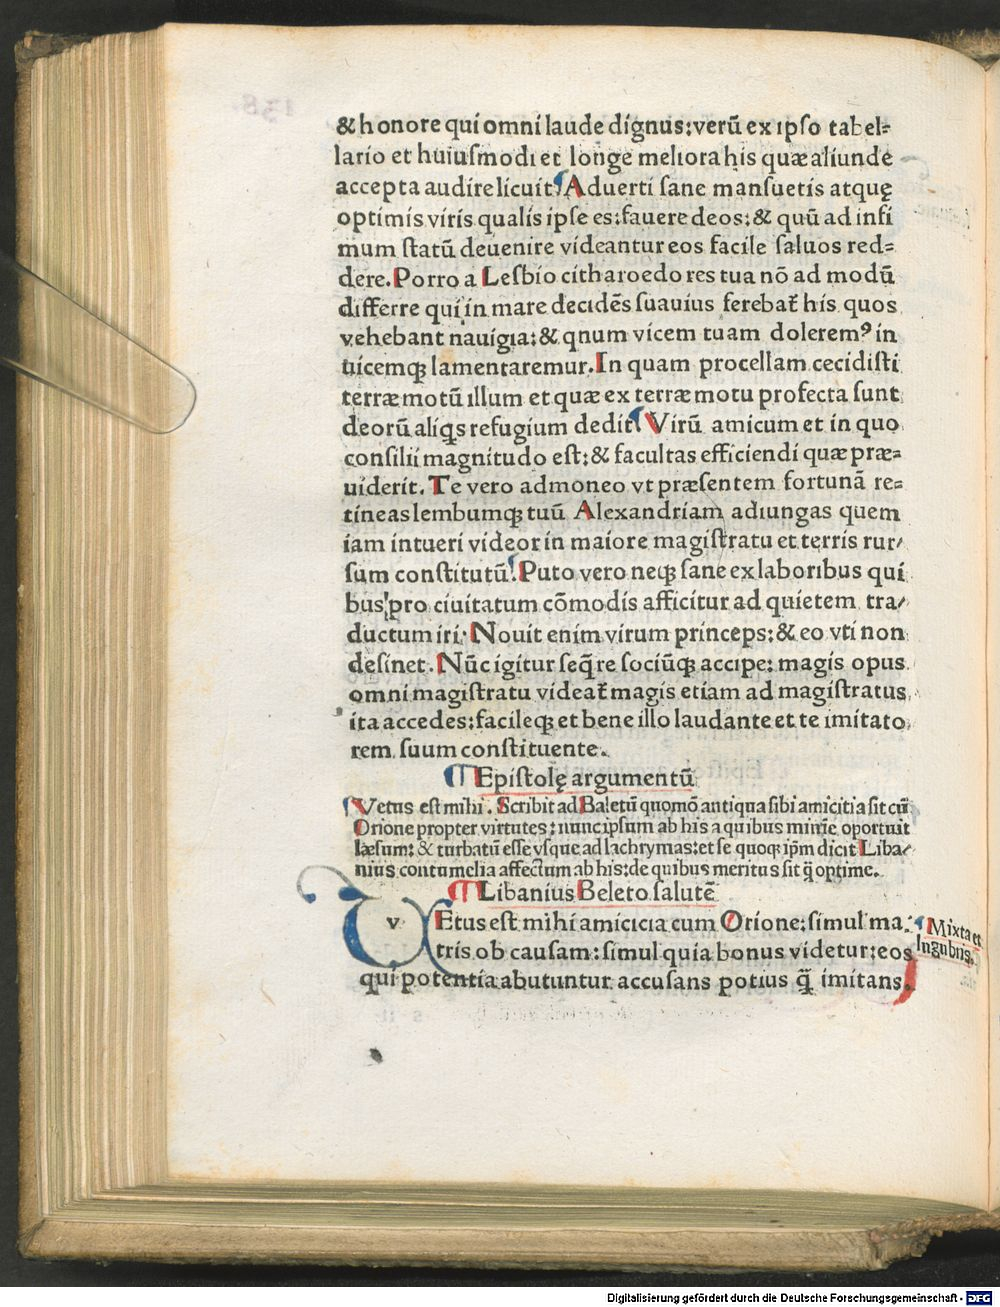 & honore qui omni laude dignus: verū ex ipso tabel=
lario et huiusmodi et longe meliora his quæ aliunde
accepta audire licuit. Aduerti sane mansuetis atquę
optimis viris qualis ipse es: fauere deos: & quū ad infi
mum statū deuenire videantur eos facile saluos red=
dere. Porro a Lesbio citharoedo res tua nō ad modū
differre qui in mare decidēs suauius ferebat᷑ his quos
vehebant nauigia: & qnum vicem tuam doleremꝰ in
uicemqꝫ lamentaremur. In quam procellam cecidisti
terræmotū illum et quæ ex terræ motu profecta sunt
deorū aliq̄s refugium dedit. Virū amicum et in quo
consilii magnitudo est: & facultas efficiendi quæ præ=
uiderit. Te vero admoneo vt præsentem fortunā re=
tineas lembumqꝫ tuū Alexandriam adiungas quem
iam intueri videor in maiore magistratu et terris rur/
sum constitutū. Puto vero neqꝫ sane ex laboribus qui
bus pro ciuitatum cōmodis afficitur ad quietem tra/
ductum iri. Nouit enim virum princeps: & eo vti non
desinet. Nūc igitur seq̄re sociūqꝫ accipe: magis opus
omni magistratu videat᷑ magis etiam ad magistratus
ita accedes: facileqꝫ et bene illo laudante et te imitato
rem suum constituente.
Epistolę argumentū
Vetus est mihi. Scribit ad Baletū quomō antiqua sibi amicitia sit cū
Orione propter virtutes: nunc ipsum ab his a quibus minīe oportuit
læsum: & turbatū esse vsque ad lachrymas: et se quoqꝫ ip̄m dicit Liba/
nius contumelia affectum ab his: de quibus meritus sit q̄ optime.
Libanius Beleto salutē
vEtus est mihi amicicia cum Orione: simul ma
tris ob causam: simul quia bonus videtur: eos
qui potentia abutuntur accusans potius q̄ imitans.
Mixta et
lugubris.
Digitalisierung gefördert durch die Deutsche Forschungsgemeinschaft - DFG